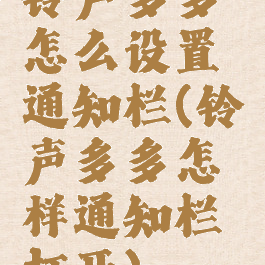 铃声多多
怎么设置
通知栏(铃
声多多怎
样通知栏
打开)